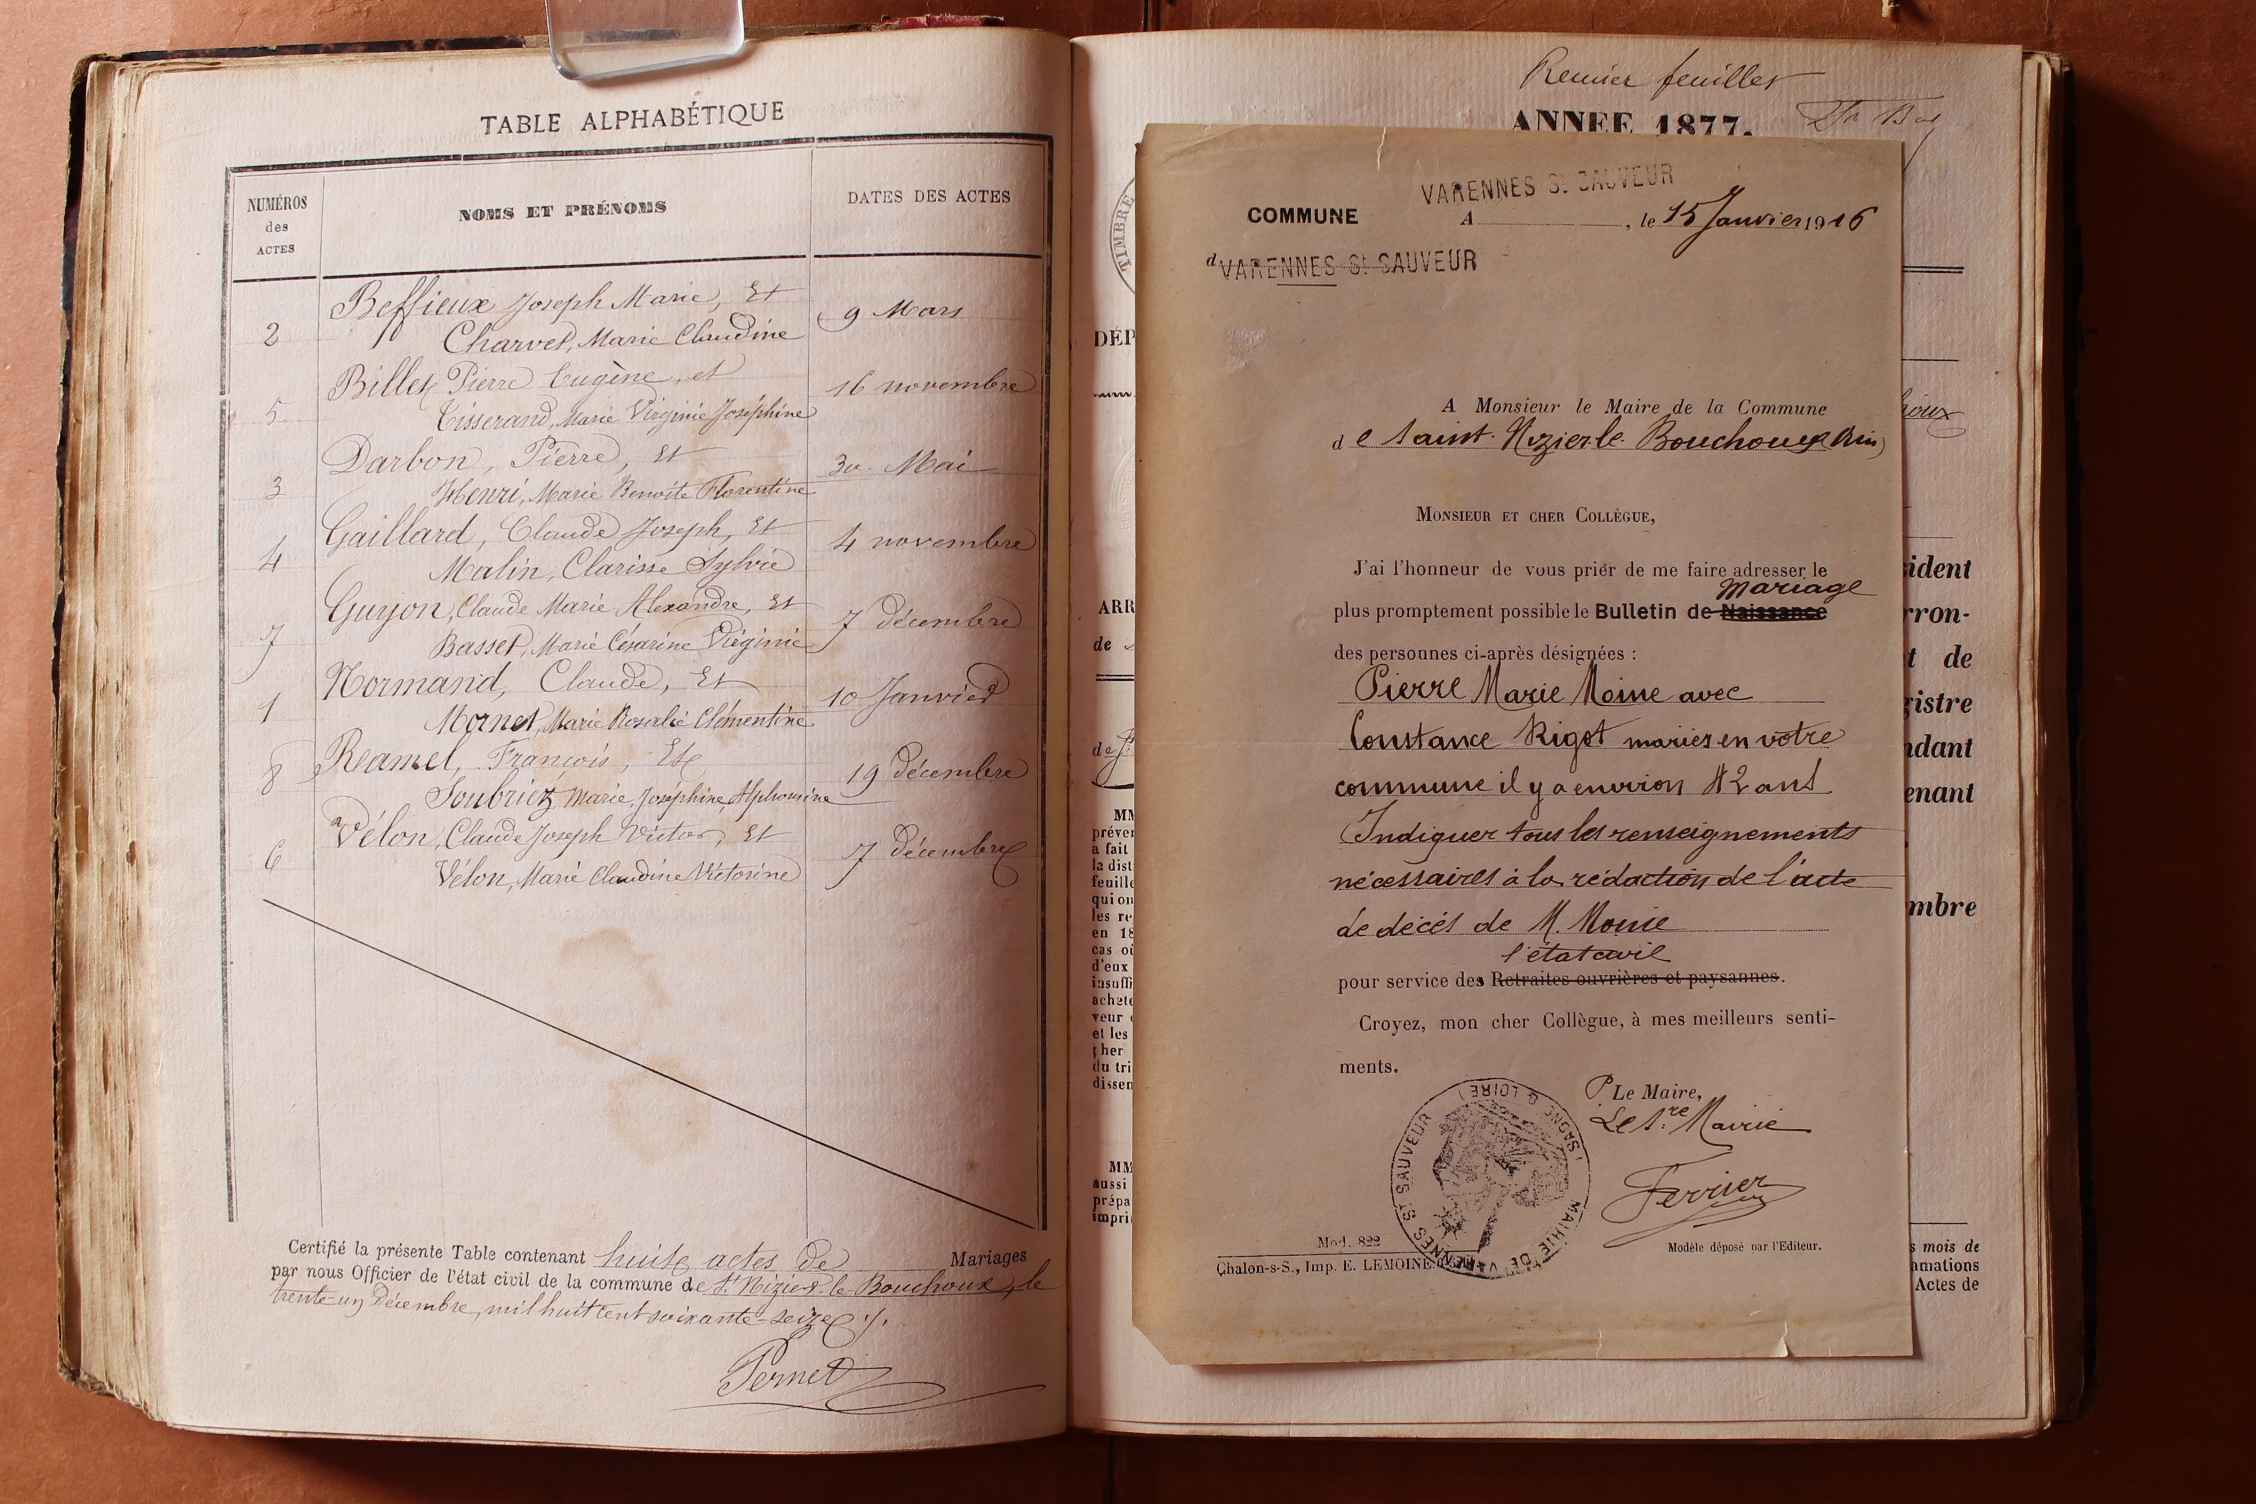 TABLE ALPHABÉTIQUE
NUMÉROS
des
ACTES
NOMS ET PRÉNOMS
DATES DES ACTES
Beffieux Joseph Marie, Et
2
Charvet, Marie Claudine
9 Mars
Billet Pierre Eugène, et
5
Tisserand, Marie Virginie Joséphine
16 novembre
Darbon, Pierre, Et
3
Henri, Marie Benoite Florentine
30 Mai
Gaillard, Claude Joseph, Et
4
Malin, Clarisse Sylvie
4 novembre
Guyon, Claude Marie Alexandre, Et
7
Basset, Marie Césarine Virginie
7 décembre
Normand, Claude, Et
1
Mornet, Marie Rosalie Clémentine
10 Janvier
Reamel, François, Et
8
Soubriez, Marie Joséphine Alphonsine
19 décembre
Vélon, Claude Joseph Victor, Et
6
Vélon, Marie Claudine Victorine
7 décembre
Certifié la présente Table contenant huit actes de Mariages
par nous Officier de l'état civil de la commune de St Nizier-le-Bouchoux, le
trente-un Décembre, mil huit cent soixante-seize
Pernet
Premier feuillet
ANNEE 1877.
TIMBRE
DÉP
houx
ARR
de
MM
préver
a fait
la dist
feuille
qui on
les re
en 18
cas où
d'eux
insuffi
achete
veur
et les
cher
du tri
dissen
MM
aussi
prépa
impri
ident
rron-
t de
gistre
ndant
enant
mbre
s mois de
mations
Actes de
VARENNES St SAUVEUR
COMMUNE
A , le 15 Janvier 1916
d VARENNES St SAUVEUR
A Monsieur le Maire de la Commune
d e Saint-Nizier le Bouchoux (Ain)
MONSIEUR ET CHER COLLÈGUE,
J'ai l'honneur de vous prier de me faire adresser le
mariage
plus promptement possible le Bulletin de Naissance
des personnes ci-après désignées :
Pierre Marie Moine avec
Constance Rigot mariés en votre
commune il y a environ 42 ans
Indiquer tous les renseignements
nécessaires à la rédaction de l'acte
de décès de M. Moine
l'état civil
pour service des Retraites ouvrières et paysannes.
Croyez, mon cher Collègue, à mes meilleurs senti-
ments.
P Le Maire,
Le S.re Mairie
Ferrier
MAIRIE DE VARENNES ST SAUVEUR (SAONE & LOIRE)
Mod. 822
Chalon-s-S., Imp. E. LEMOINE
Modèle déposé par l'Editeur.